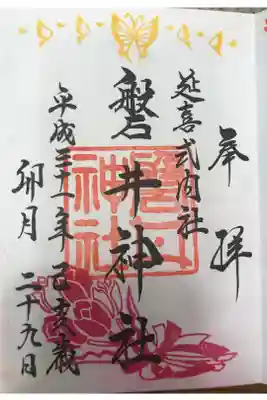 奉拝
延喜式内社
磐井神社
平成三十一年 己亥歳
卯月 二十九日
磐井神社